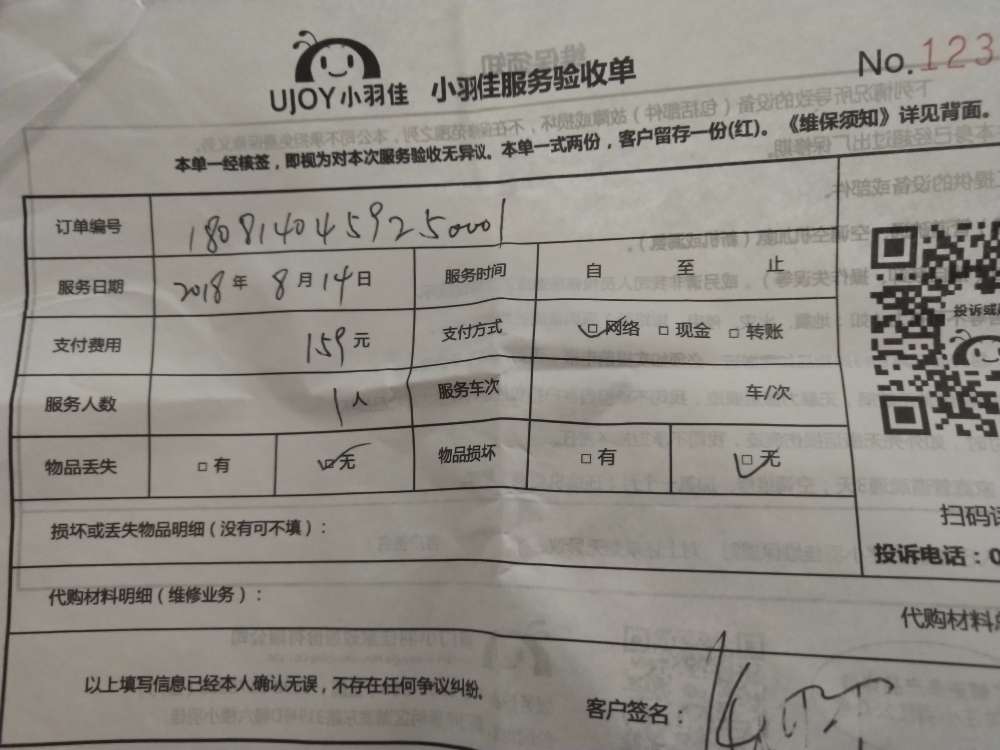 UJOY小羽佳 小羽佳服务验收单 No.123
本单一经核签，即视为对本次服务验收无异议。本单一式两份，客户留存一份(红)。《维保须知》详见背面。
订单编号 1808140459250001
服务日期 2018年 8月14日 服务时间 自 至 止
支付费用 159元 支付方式 □网络 □现金 □转账
服务人数 1人 服务车次 车/次
物品丢失 □有 □无 物品损坏 □有 □无
投诉或
损坏或丢失物品明细（没有可不填）：
扫码
投诉电话：0
代购材料明细（维修业务）：
代购材料
以上填写信息已经本人确认无误，不存在任何争议纠纷。
客户签名：